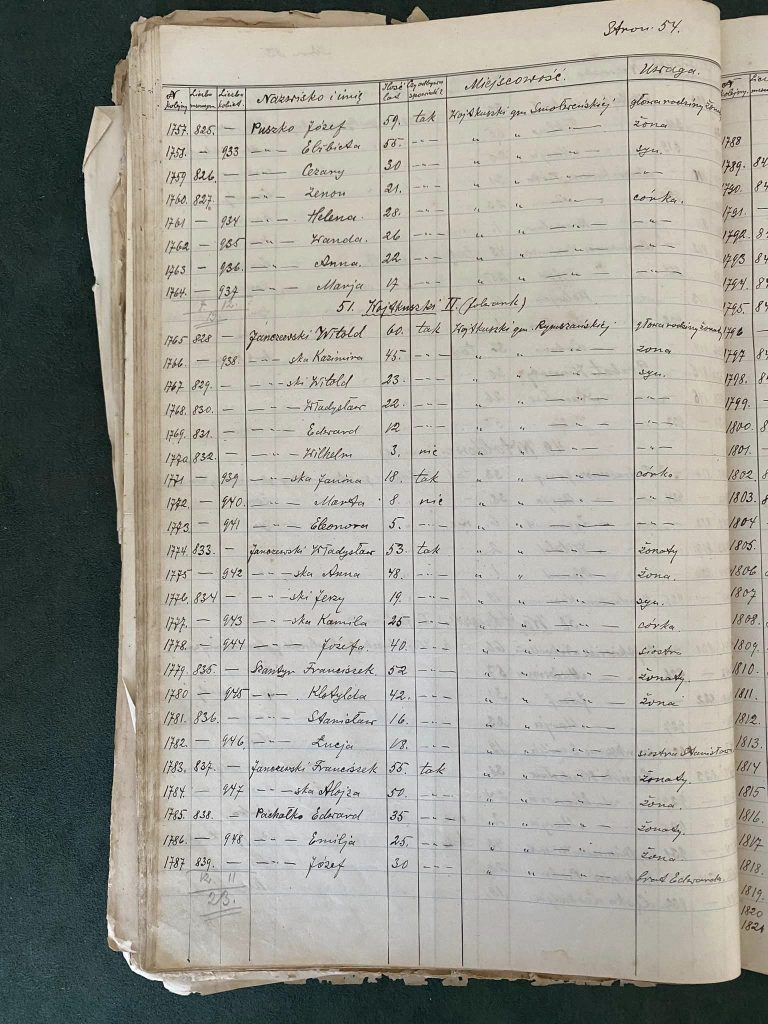 Stron. 54.
№ kolejny Liczba mężczyzn Liczba kobiet. Nazwisko i imię Ilość lat. Czy odbywa spowiedź? Miejscowość. Uwaga.
1757. 825. — Puszko Józef 59. tak Wojtkuszki gm. głowa rodziny żonaty
1758. — 933 —"— Elżbieta 55. —"— " " —"— żona
1759 826. — —"— Cezary 30 —"— " " —"— syn.
1760. 827. — —"— Zenon 21. —"— " " —"— —"—
1761 — 934 —"— Helena. 28. —"— " " —"— córka.
1762 — 935 —"— Wanda. 26 —"— " " —"— —"—
1763 — 936. —"— Anna. 22 —"— " " —"— —"—
1764. — 937 —"— Marja 17 —"— " " —"— —"—
51. Wojtkuszki II. (folwark)
1765 828 — Janczewski Witold 60. tak Wojtkuszki gm. głowa rodziny żonaty
1766. — 938. —"— ska Kazimira 45. —"— " " —"— żona
1767 829. — —"— ski Witold 23. —"— " " —"— syn.
1768. 830. — —"— Władysław 22. —"— " " —"— —"—
1769. 831. — —"— Edward 12 —"— " " —"— —"—
1770. 832. — —"— Wilhelm 3. nie " " —"— —"—
1771 — 939 —"— ska Janina 18. tak " " —"— córka
1772. — 940. —"— Marta 8 nie " " —"— —"—
1773 — 941 —"— Eleonora 5. —"— " " —"— —"—
1774. 833. — Janczewski Władysław 53. tak " " —"— żonaty
1775 — 942 —"— ska Anna 48. —"— " " —"— żona.
1776. 834 — —"— ski Jerzy 19. —"— " " —"— syn.
1777. — 943 —"— ska Kamila 25 —"— " " —"— córka
1778. — 944 —"— Józefa. 40. —"— " " —"— siostra
1779. 835. — Franciszek 52 —"— " " —"— żonaty.
1780 — 945 —"— Klotylda 42. —"— " " —"— żona
1781. 836. — —"— Stanisław 16. —"— " " —"—
1782. — 946. —"— Łucja 18. —"— " " —"— siostra Stanisława
1783. 837. — Janczewski Franciszek 55. tak " " —"— żonaty.
1784. — 947 —"— ska Alojza 50. —"— " " —"— żona.
1785. 838. — Pachałko Edward 35 —"— " " —"— żonaty.
1786. — 948 —"— Emilja 25. —"— " " —"— żona
1787 839. — —"— Józef 30 —"— " " —"— brat Edwarda.
12. 11
23.
№ kolejny.
1788
1789.
1790.
1791.
1792.
1793
1794
1795.
1796
1797
1798.
1799.
1800.
1801.
1802
1803.
1804
1805.
1806
1807
1808.
1809.
1810.
1811.
1812.
1813.
1814
1815
1816.
1817
1818.
1819.
1820
1821